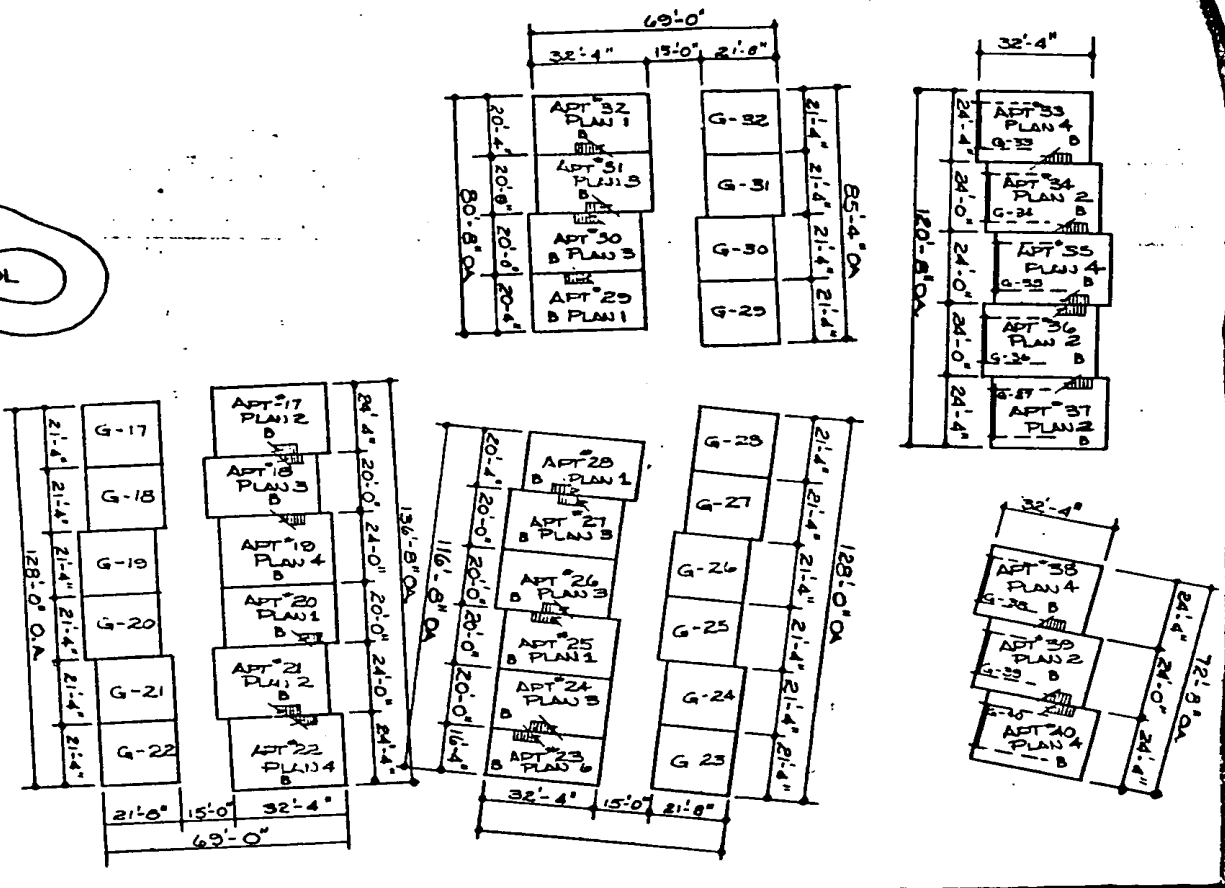 69'-0"
32'-4" 15'-0" 21'-8"
80'-8" OA
20'-4"
20'-8"
20'-8"
20'-4"
APT #32
PLAN 1
B
APT #31
PLAN 3
B
APT #30
B PLAN 3
APT #29
B PLAN 1
G-32
G-31
G-30
G-29
21'-4"
21'-4"
21'-4"
21'-4"
85'-4" OA
32'-4"
120'-8" OA
24'-4"
24'-0"
24'-0"
24'-0"
24'-4"
APT #33
PLAN 4
G-33 B
APT #34
PLAN 2
G-34 B
APT #35
PLAN 4
G-35 B
APT #36
PLAN 2
G-36 B
G-37
APT #37
PLAN
B
OL
128'-0" O.A.
21'-4"
21'-4"
21'-4"
21'-4"
21'-4"
21'-4"
G-17
G-18
G-19
G-20
G-21
G-22
APT #17
PLAN 2
B
APT #18
PLAN 3
B
APT #19
PLAN 4
B
APT #20
PLAN 1
B
APT #21
PLAN 2
B
APT #22
PLAN 4
B
24'-4"
20'-0"
24'-0"
20'-0"
24'-0"
24'-4"
136'-8" OA
21'-8" 15'-0" 32'-4"
69'-0"
116'-8" OA
20'-4"
20'-0"
20'-0"
20'-0"
20'-0"
16'-4"
APT #28
B PLAN 1
APT #27
B PLAN 3
APT #26
PLAN 3
B
APT #25
B PLAN 1
APT #24
B PLAN 3
APT #23
B PLAN
G-28
G-27
G-26
G-25
G-24
G-23
21'-4"
21'-4"
21'-4"
21'-4"
21'-4"
21'-4"
128'-0" OA
32'-4" 15'-0" 21'-8"
32'-4"
APT #38
PLAN 4
G-38 B
APT #39
PLAN 2
G-39 B
G-40
APT #40
PLAN 4
B
24'-4"
24'-0"
24'-4"
72'-8" OA